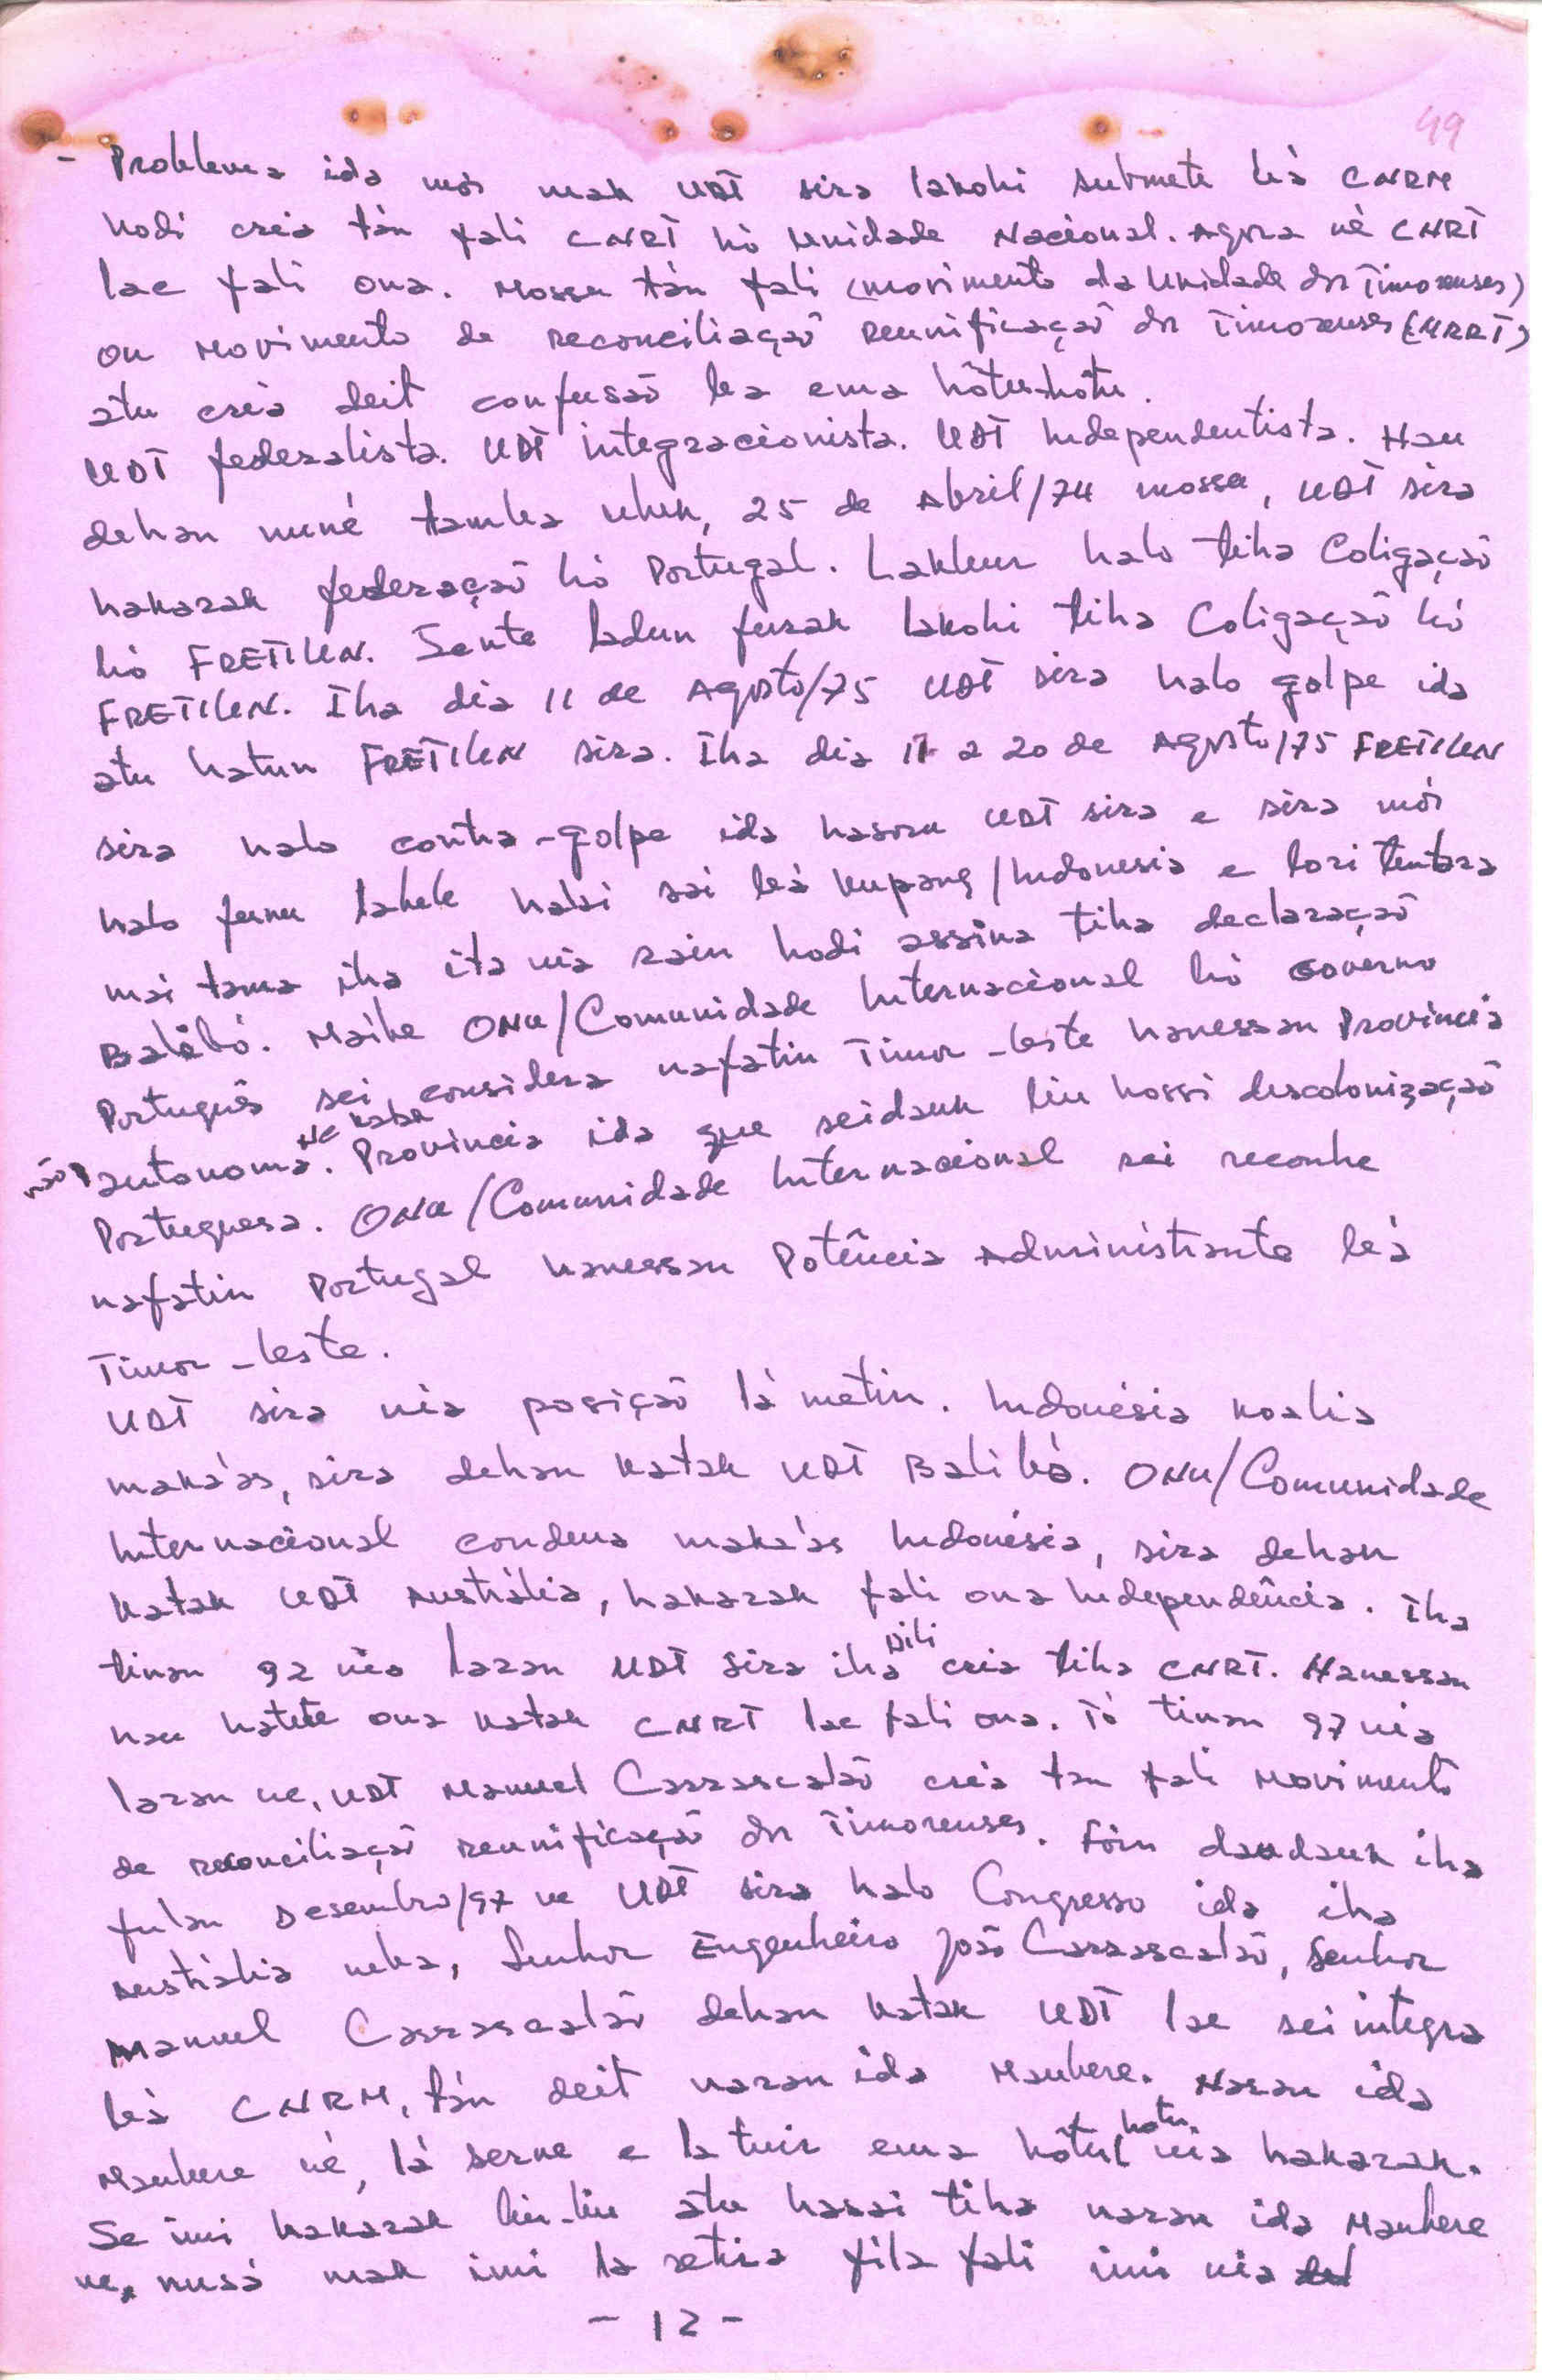 49
- Problema ida mós mak UDT sira lakohi submete bá CNRM
hodi cria tán fali CNRT hó Unidade Nacional. Agora né CNRT
lae fali ona. Mossu tán fali (movimento da Unidade dos Timorenses)
ou Movimento de reconciliação Reunificação dos Timorenses (MRRT)
atu cria deit confusão ba ema hôtu-hôtu.
UDT federalista. UDT integracionista. UDT Independentista. Hau
dehan nuné tamba uluk, 25 de Abril/74 mossu, UDT sira
hakarak federação hó Portugal. Lakleur halo tiha Coligação
hó FRETILIN. Sente ladun furak lakohi tiha Coligação hó
FRETILIN. Iha dia 11 de Agosto/75 UDT sira halo golpe ida
atu hatun FRETILIN sira. Iha dia 11 a 20 de Agosto/75 FRETILIN
sira halo contra-golpe ida hasoru UDT sira e sira mós
halo funu labele halai sai bá Kupang/Indonesia e lori tentara
mai tama iha ita nia rain hodi assina tiha declaração
Balibó. Maibe ONU/Comunidade Internacional hó Governo
Português sei considera nafatin Timor-Leste hanessan Provincia
não autonoma. Ne katak Provincia ida que seidauk liu hossi descolonização
Portuguesa. ONU/Comunidade Internacional sei reconhe
nafatin Portugal hanessan Potência Administrante bá
Timor-Leste.
UDT sira nia posição lá metin. Indonésia koalia
maka'as, sira dehan katak UDT Balibó. ONU/Comunidade
Internacional condena maka'as Indonésia, sira dehan
katak UDT Austrália, hakarak fali ona Independência. Iha
tinan 92 nia laran UDT sira iha Dili cria tiha CNRT. Hanessan
hau hatete ona katak CNRT lae fali ona. Tó tinan 97 nia
laran ne, UDT Manuel Carrascalão cria tan fali Movimento
de reconciliação reunificação dos Timorenses. Foin daudauk iha
fulan Desembro/97 ne UDT sira halo Congresso ida iha
Austrália neba, Senhor Engenheiro João Carrascalão, Senhor
Manuel Carrascalão dehan katak UDT lae sei integra
bá CNRM, tán deit naran ida Maubere. Naran ida
Maubere né, lá serve e la tuir ema hôtu hotu nia hakarak.
Se imi hakarak liu-liu atu hasai tiha naran ida Maubere
ne, nusá mak imi la retira fila fali imi nia
- 12 -